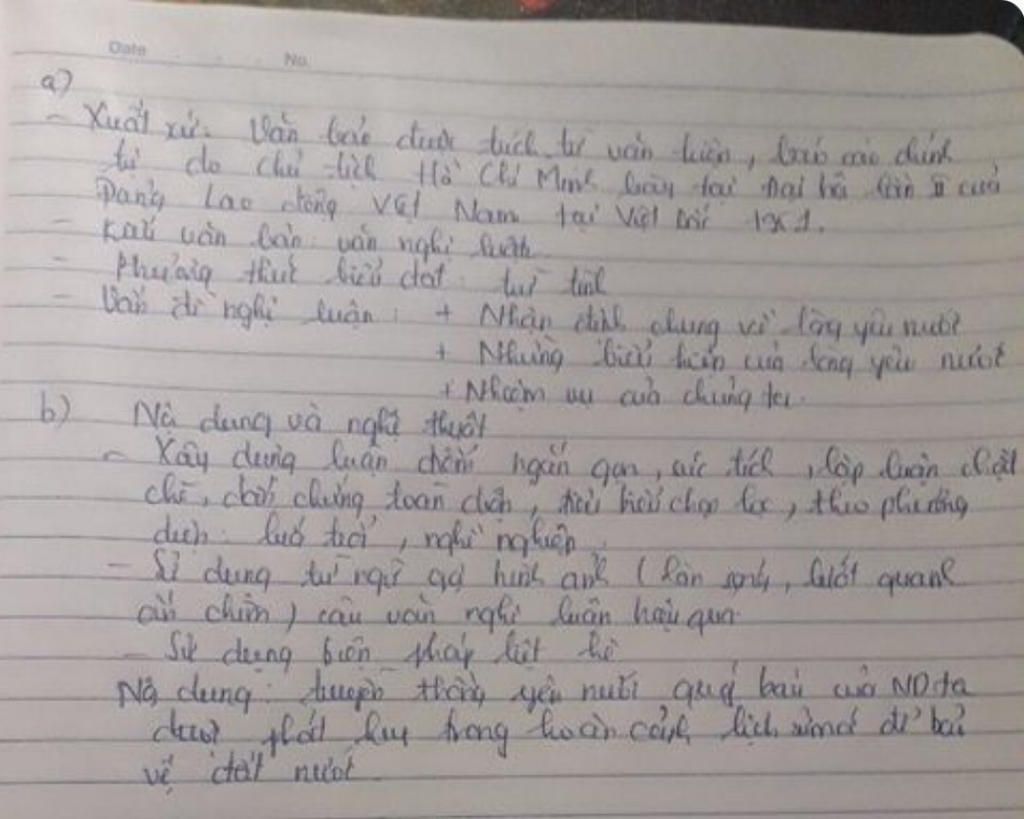 Date No.
a)
- Xuất xứ: Văn bản được trích từ văn kiện, báo cáo chính
trị do chủ tịch Hồ Chí Minh bày tại Đại hô lần II của
Đảng Lao động Việt Nam tại Việt Bắc 1951.
- Kiểu văn bản: văn nghị luận
- Phương thức biểu đạt: tự tình
- Vấn đề nghị luận: + Nhận định chung về lòng yêu nước
+ Những biểu hiện của lòng yêu nước
+ Nhiệm vụ của chúng ta.
b) Nội dung và nghệ thuật
- Xây dựng luận điểm ngắn gọn, súc tích, lập luận chặt
chẽ, dẫn chứng toàn diện, tiêu biểu chọn lọc, theo phương
diện: lứa tuổi, nghề nghiệp.
- Sử dụng từ ngữ gợi hình ảnh (làn sóng, lướt quanh
chìm) câu văn nghị luận hiệu quả.
- Sử dụng biện pháp liệt kê
Nội dung: truyền thống yêu nước quý báu của ND ta
được phát huy trong hoàn cảnh lịch sử mới để bảo
vệ đất nước